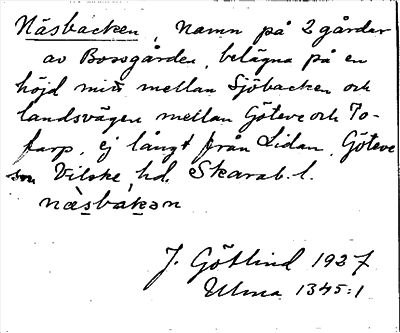 Näsbacken, namn på 2 gårdar
av Bossgården, belägna på en
höjd mitt mellan Sjöbacken och
landsvägen mellan Göteve och To-
farp, ej långt från Lidan, Göteve
sn Vilske hd. Skarab. l.
nä̀sbakən
J. Götlind 1927
Ulma 1345:1